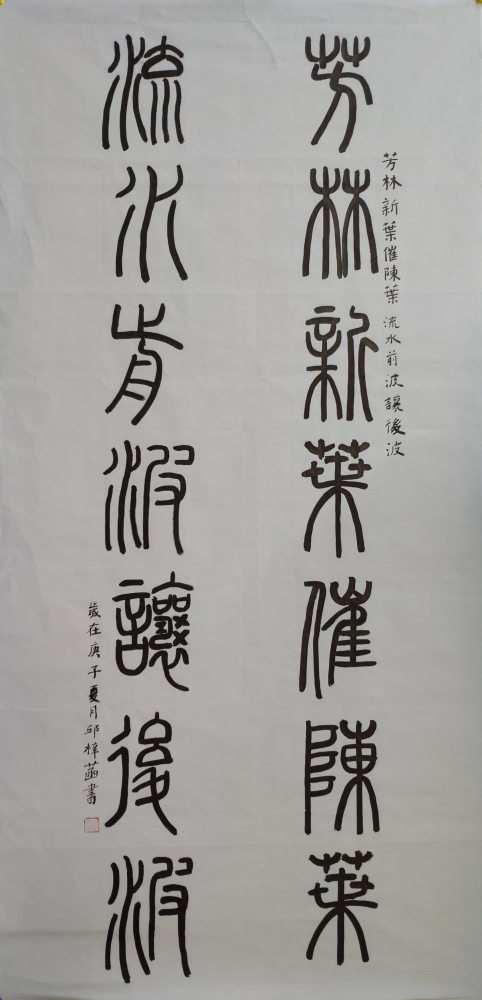 芳林新葉催陳葉
芳林新葉催陳葉 流水前波讓後波
流水前波讓後波
歲在庚子夏月邱梓菡書